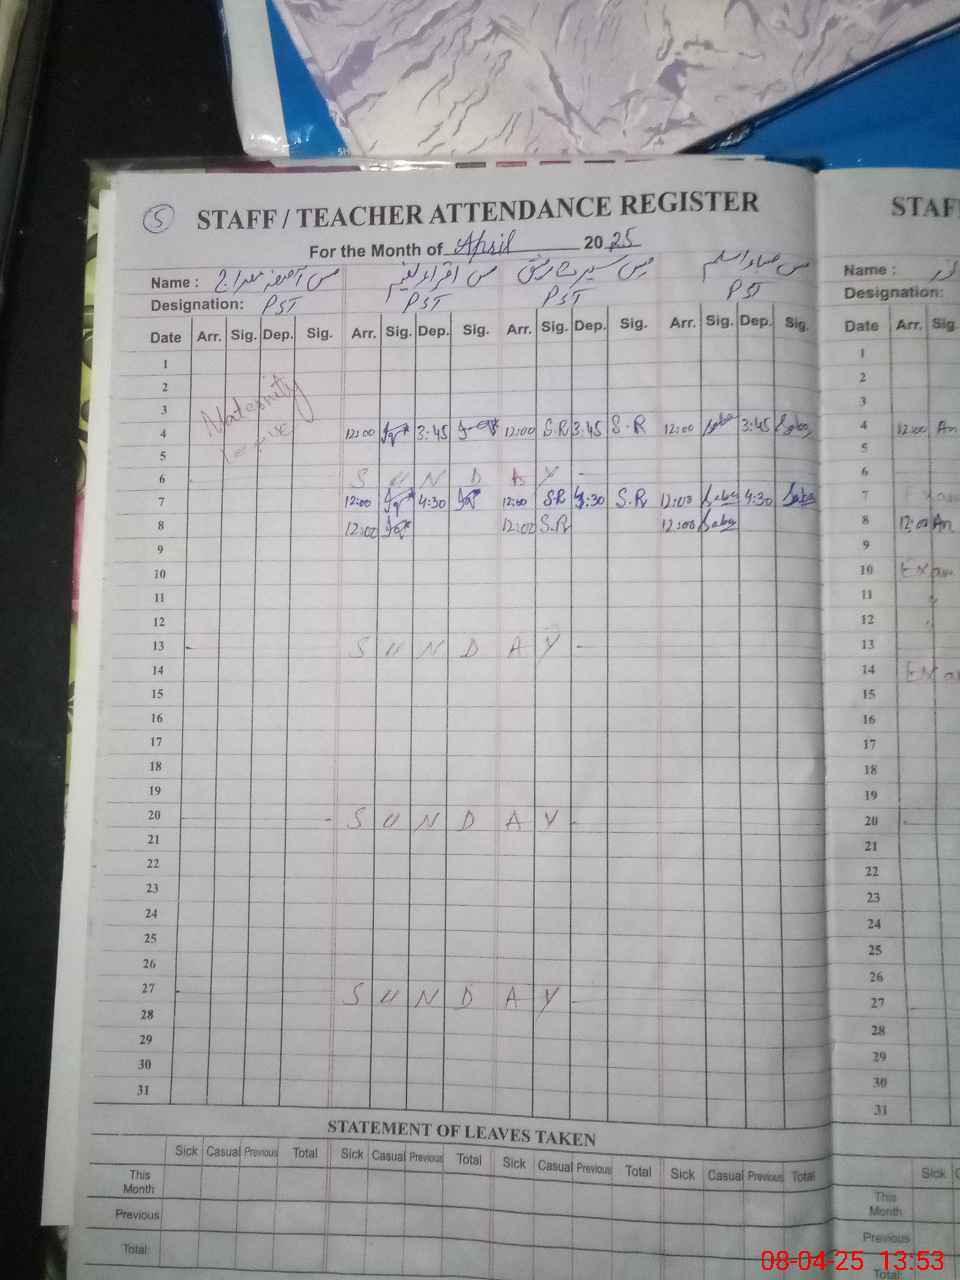 SH
5 STAFF / TEACHER ATTENDANCE REGISTER STAF
For the Month of April 2025
Name : مس مس اقراء نعیم مس مس صباء اسلم Name :
Designation: PST PST PST PST Designation:
Date Arr. Sig. Dep. Sig. Arr. Sig. Dep. Sig. Arr. Sig. Dep. Sig. Arr. Sig. Dep. Sig. Date Arr. Sig
1 1
2 2
3 Maternity 3
4 Leave 12:00 3:45 12:00 S.R 3:45 S.R 12:00 Saba 3:45 Saba 4 12:00 An
5 5
6 S U N D A Y 6
7 12:00 4:30 12:00 S.R 4:30 S.R 12:00 Saba 4:30 Saba 7
8 12:00 12:00 S.R 12:00 Saba 8 12:00 An
9 9
10 10 Exam
11 11
12 12
13 S U N D A Y 13
14 14 Exa
15 15
16 16
17 17
18 18
19 19
20 S U N D A Y 20
21 21
22 22
23 23
24 24
25 25
26 26
27 S U N D A Y 27
28 28
29 29
30 30
31 31
STATEMENT OF LEAVES TAKEN
Sick Casual Previous Total Sick Casual Previous Total Sick Casual Previous Total Sick Casual Previous Total Sick C
This Month This Month
Previous Previous
Total: Total:
08-04-25 13:53